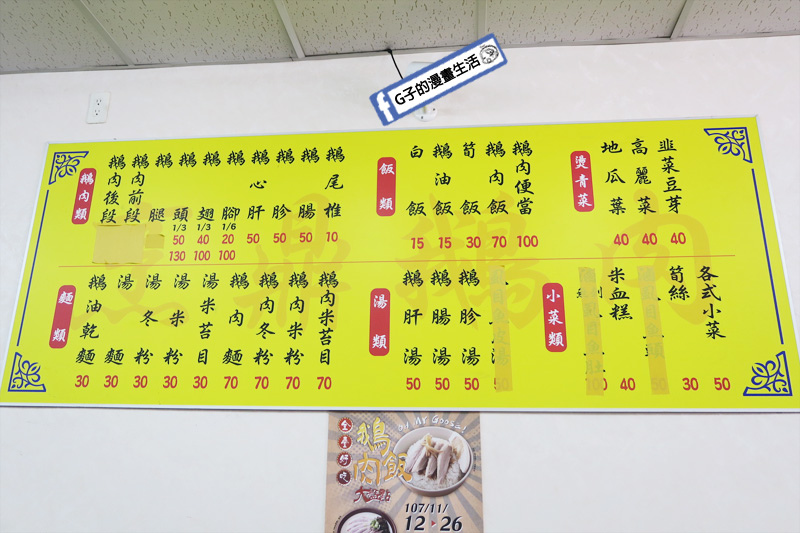 G子的漫畫生活
鵝肉類
鵝肉後段
鵝肉前段
鵝腿
鵝頭 1/3 50 130
鵝翅 1/3 40 100
鵝腳 1/6 20 100
鵝心肝 50
鵝胗 50
鵝腸 50
鵝尾椎 10
飯類
白飯 15
鵝油飯 15
筍飯 30
鵝肉飯 70
鵝肉便當 100
燙青菜
地瓜葉 40
高麗菜 40
韭菜豆芽 40
麵類
鵝油乾麵 30
湯麵 30
湯冬粉 30
湯米粉 30
湯米苔目 30
鵝肉麵 70
鵝肉冬粉 70
鵝肉米粉 70
鵝肉米苔目 70
湯類
鵝肝湯 50
鵝腸湯 50
鵝胗湯 50
50
小菜類
100
米血糕 40
50
筍絲 30
各式小菜 50
全台好吃
Oh My Goose!
鵝肉飯
大盤點
107/11/
12 26